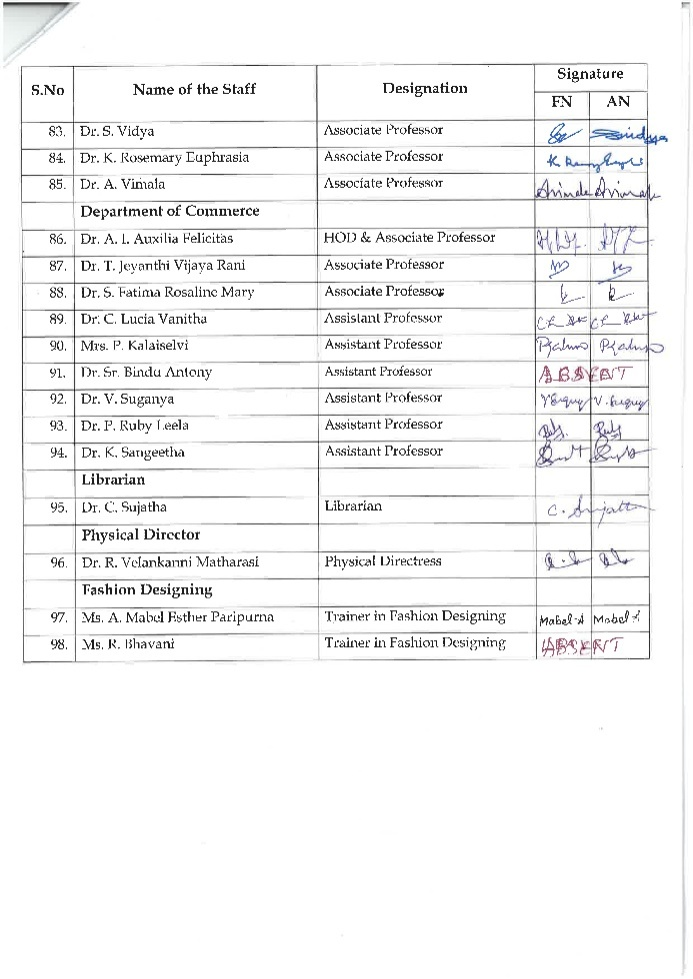 S.No Name of the Staff Designation Signature
FN AN
83. Dr. S. Vidya Associate Professor
84. Dr. K. Rosemary Euphrasia Associate Professor
85. Dr. A. Vimala Associate Professor
Department of Commerce
86. Dr. A. I. Auxilia Felicitas HOD & Associate Professor
87. Dr. T. Jeyanthi Vijaya Rani Associate Professor
88. Dr. S. Fatima Rosaline Mary Associate Professor
89. Dr. C. Lucia Vanitha Assistant Professor
90. Mrs. P. Kalaiselvi Assistant Professor
91. Dr. Sr. Bindu Antony Assistant Professor ABSENT
92. Dr. V. Suganya Assistant Professor
93. Dr. P. Ruby Leela Assistant Professor
94. Dr. K. Sangeetha Assistant Professor
Librarian
95. Dr. C. Sujatha Librarian
Physical Director
96. Dr. R. Velankanni Matharasi Physical Directress
Fashion Designing
97. Ms. A. Mabel Esther Paripurna Trainer in Fashion Designing Mabel Mabel
98. Ms. R. Bhavani Trainer in Fashion Designing ABSENT